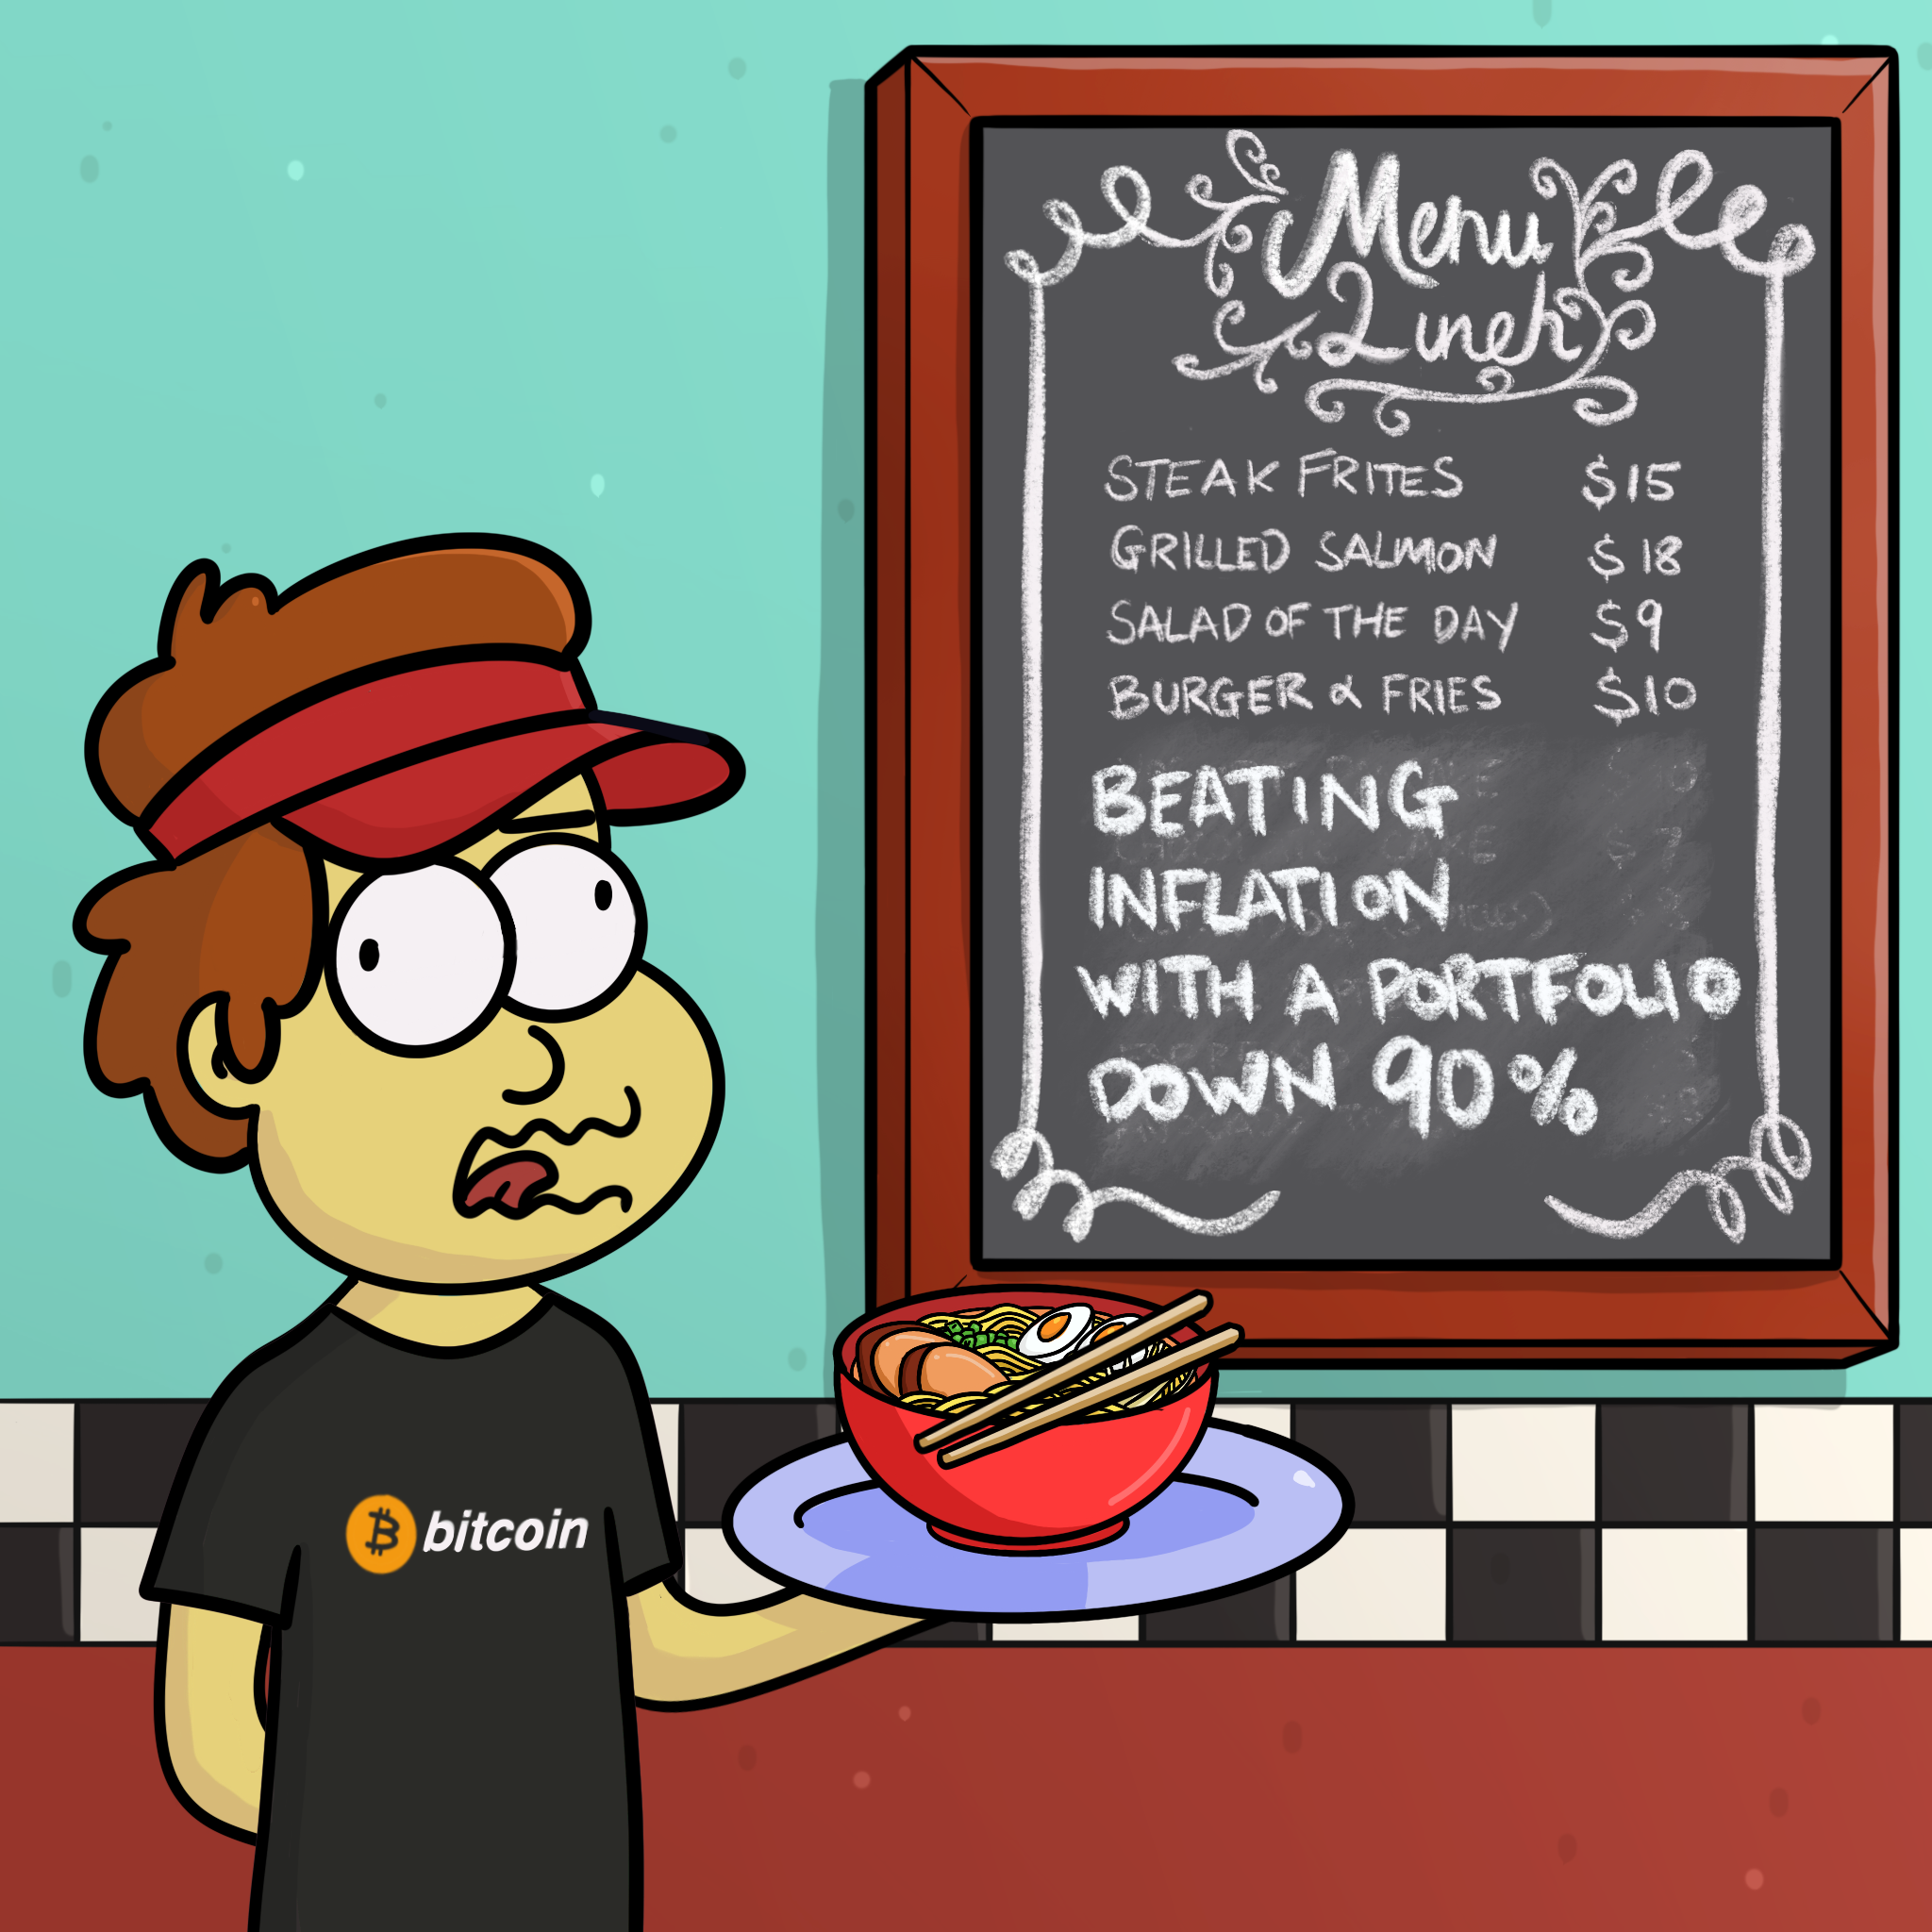 Menu
Lunch
STEAK FRITES $15
GRILLED SALMON $18
SALAD OF THE DAY $9
BURGER & FRIES $10
BEATING
INFLATION
WITH A PORTFOLIO
DOWN 90%
bitcoin